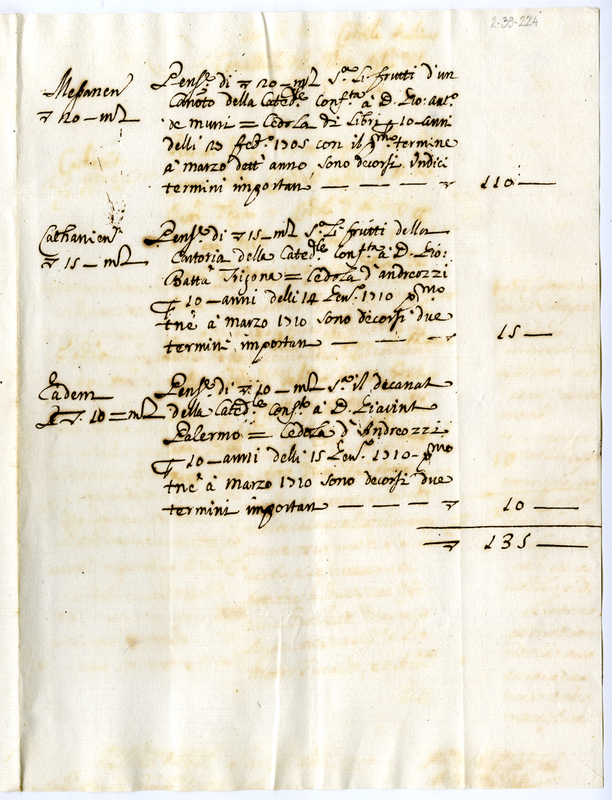 2-39-224
Messanen Pens.e di ∇ 20 — m.ta s.a li frutti d'un
∇ 20 — m.ta Canto della Catedle Confta à D. Gio: ant.o
de muni = Cedola di Libri p 10 — anni
delli 23 feb.o 1705 con il pmo termine
à marzo dett' anno, sono decorsi Undici
termini importan — — — — ∇ 110 —
Cathanien Pens.e di ∇ 15 — m.ta s.a li frutti della
∇ 15 — m.ta Cantoria della Catedle Confta à D. Gio:
Batta Trigona = Cedola d'andreozzi
p 10 — anni delli 14 Gen.o 1710 pmo
tne à marzo 1710 sono decorsi due
termini importan — — — ∇ 15 —
Eadem Pens.e di ∇ 10 — m.ta s.a il decanat
∇ 10 = m.ta della Catedle Confta à D. Giacint
Palermo = Cedola d'Andreozzi
p 10 — anni delli 15 Gen.o 1710 — pmo
tne à marzo 1710 sono decorsi due
termini importan — — — — ∇ 10 —
∇ 135 —